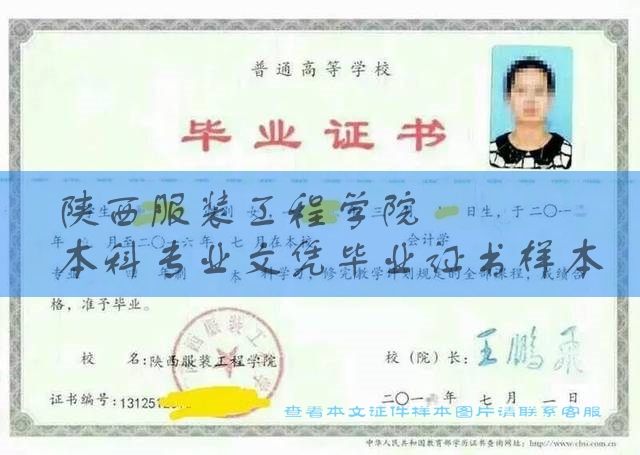 普通高等学校
毕业证书
陕西服装工程学院
本科专业文凭毕业证书样本
学生 三 一日生，于二〇一二
年 月至二〇一六年七月在本校 会计学
专业 年制 本 科学习，修完教学计划规定的全部课程，成绩合
格，准予毕业。
校 名：陕西服装工程学院
校（院）长：王鹏飞
证书编号：131251
二〇一 年 七 月 一 日
查看本文证件样本图片请联系客服
中华人民共和国教育部学历证书查询网址：http://www.chsi.com.cn